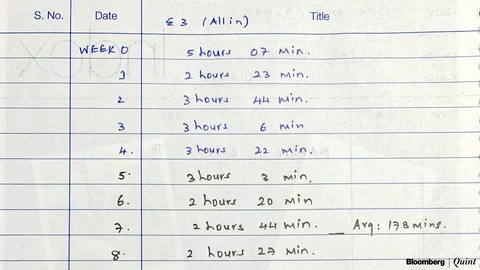 S. No. Date Title
£3 (All in)
WEEK 0 5 hours 07 min.
1 2 hours 23 min.
2 3 hours 44 min.
3 3 hours 6 min
4. 3 hours 22 min.
5. 3 hours 3 min.
6. 2 hours 20 min
7. 2 hours 44 min. — Avg: 178 mins.
8. 2 hours 27 min.
Bloomberg | Quint